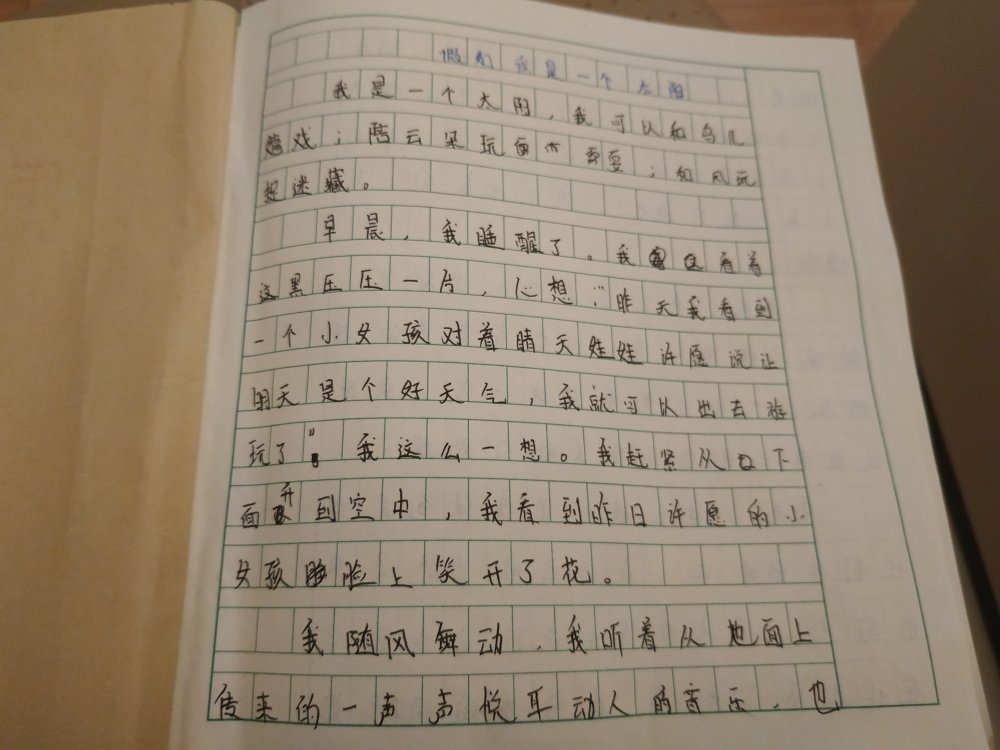 假如我是一个太阳
我是一个太阳，我可以和鸟儿
游戏；陪云朵玩耍；和风玩
捉迷藏。
早晨，我睡醒了。我看着
这黑压压一片，心想：“昨天我看到
一个小女孩对着晴天娃娃许愿说让
明天是个好天气，我就可以出去游
玩了”。我这么一想。我赶紧从口下
面升到空中，我看到昨日许愿的小
女孩脸上笑开了花。
我随风舞动，我听着从地面上
传来的一声声悦耳动人的音乐，也